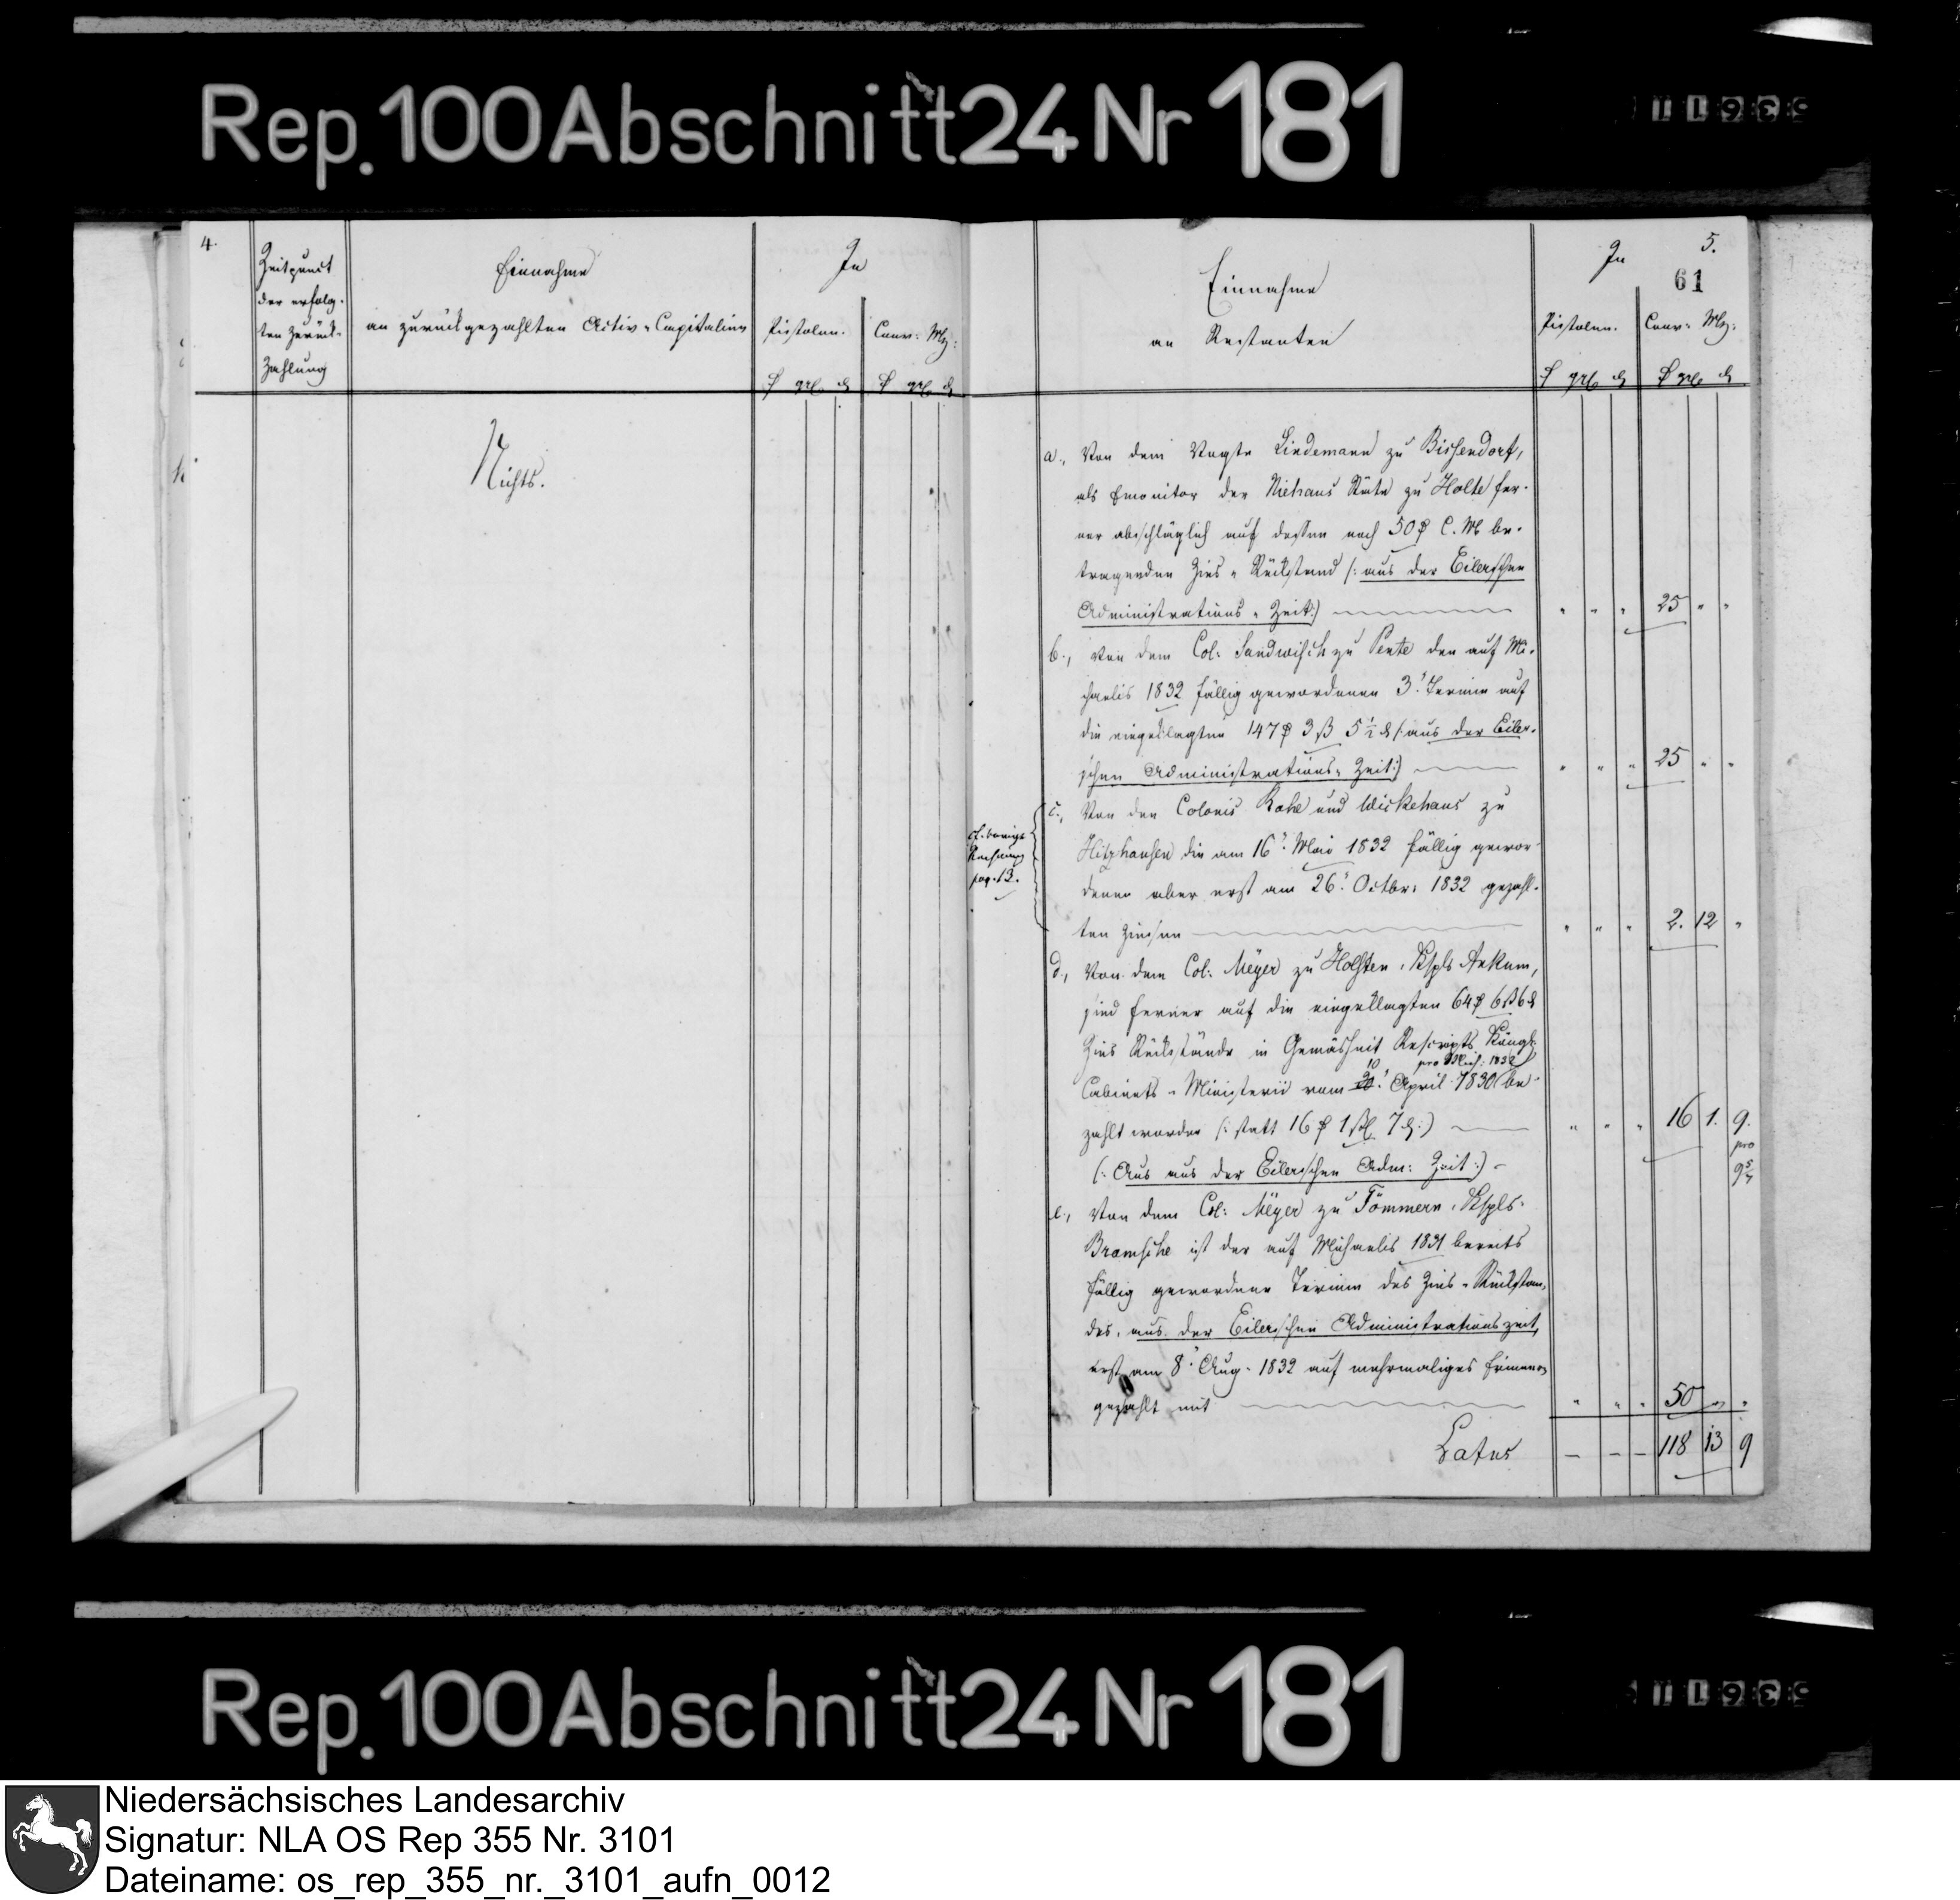 Rep. 100 Abschnitt 24 Nr 181
4.
Zeitpunct
der erfolg-
ten Zurück-
Zahlung
Einnahme
an zurückgezahlten Activ-Capitalien
In
Pistolen.
Conv: Mz:
₰ grl ₰
Nichts.
5.
61
Einnahme
an Restanten
In
Pistolen.
Conv: Mz:
a., Von dem Vogte Lindemann zu Bissendorf,
als Emonitor der Niehaus Stäte zu Holte fer-
ner abschläglich auf dessen noch 50 ₰ C. M be-
tragenden Zins-Rückstand (: aus der Eilerschen
Administrations-Zeit:) 25 " "
b., von dem Col: Sandwisch zu Pente den auf Mi-
chaelis 1832 fällig gewordenen 3t Termin auf
die eingeklagten 147 ₰ 3 ß 5 ½ d (: aus der Eiler-
schen Administrations-Zeit:) 25 " "
cf. vorige
Rechnung
pag. 13.
c., Von den Colonis Kahe und Wickehaus zu
Hitzhausen die am 16t Mai 1832 fällig gewor-
denen aber erst am 26t Octbr: 1832 gezahl-
ten Zinsen 2. 12 "
d., Von dem Col: Meyer zu Holsten, Kspls Ankum,
sind ferner auf die eingeklagten 64 ₰ 6 ß 6 d
Zins Rückstände in Gemäsheit Rescripts Königl:
pro Mich: 1832
Cabinets-Ministerii vom 10t April 1830 be-
zahlt worden (: statt 16 ₰ 1 ßl 7 d:) 16 1. 9.
pro
9 5/7
(: Aus aus der Eilerschen Adm: Zeit:)
e., Von dem Col: Meyer zu Tömmern, Kspls.
Bramsche ist der auf Michaelis 1831 bereits
fällig gewordene Termin des Zins-Rückstan-
des, aus der Eilerschen Administrationszeit,
erst am 8t Aug. 1832 auf mehrmaliges Erinnern
gezahlt mit 50 " "
Latus – – – 118 13 9
Rep. 100 Abschnitt 24 Nr 181
Niedersächsisches Landesarchiv
Signatur: NLA OS Rep 355 Nr. 3101
Dateiname: os_rep_355_nr._3101_aufn_0012